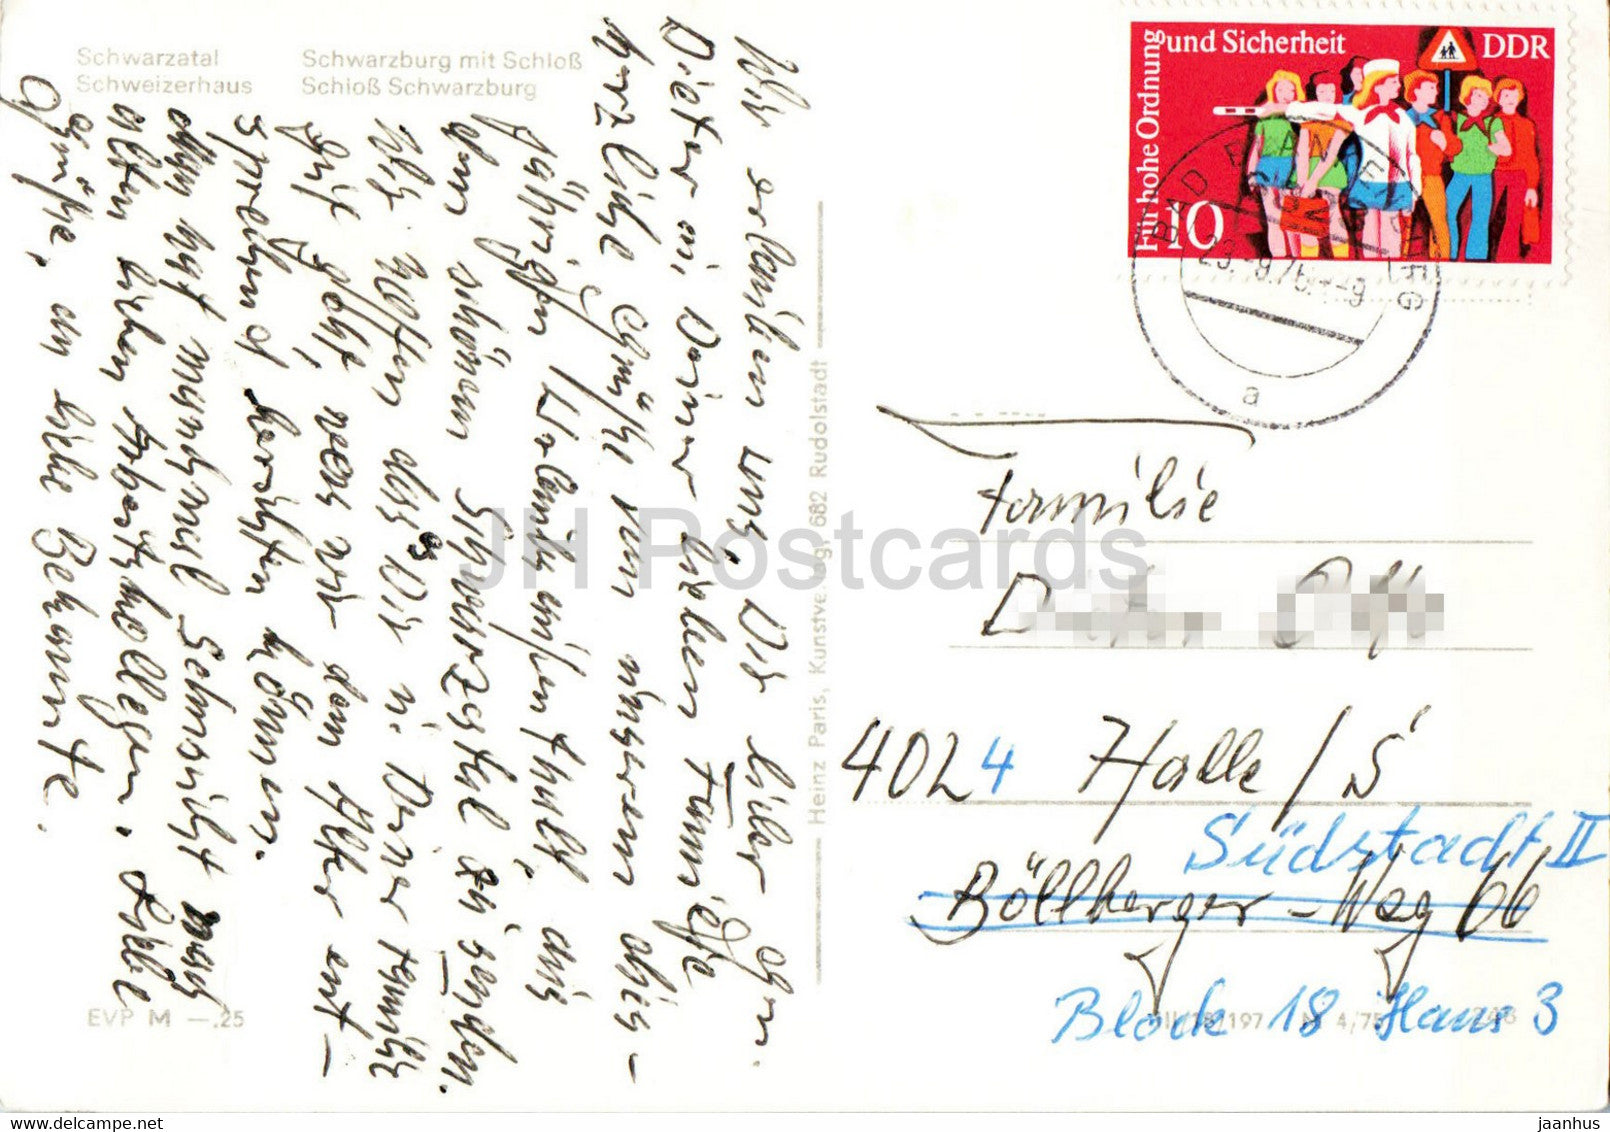 Schwarzatal
Schweizerhaus
Schwarzburg mit Schloß
Schloß Schwarzburg
Wir erlauben uns, Dir lieber
Dieter u. Deiner lieben Familie
herzliche Grüße von unserem dies-
jährigen Urlaubsaufenthalt, aus
dem schönen Schwarzatal zu senden.
Wir hoffen das es Dir u. Deiner Familie
gut geht, was wir dem Alter ent-
sprechend berichten können.
Man hat manchmal Sehnsucht nach
alten lieben Arbeitskollegen. Liebe
Grüße, an liebe Bekannte.
EVP M —.25
Heinz Paris, Kunstverlag, 682 Rudolstadt
Für hohe Ordnung und Sicherheit
DDR
10
BAD BLANKENBURG
23.-9.76.--9
a
Familie
4024 Halle / S
Südstadt II
Böllberger-Weg 66
Block 18 Haus 3
JH Postcards
jaanhus